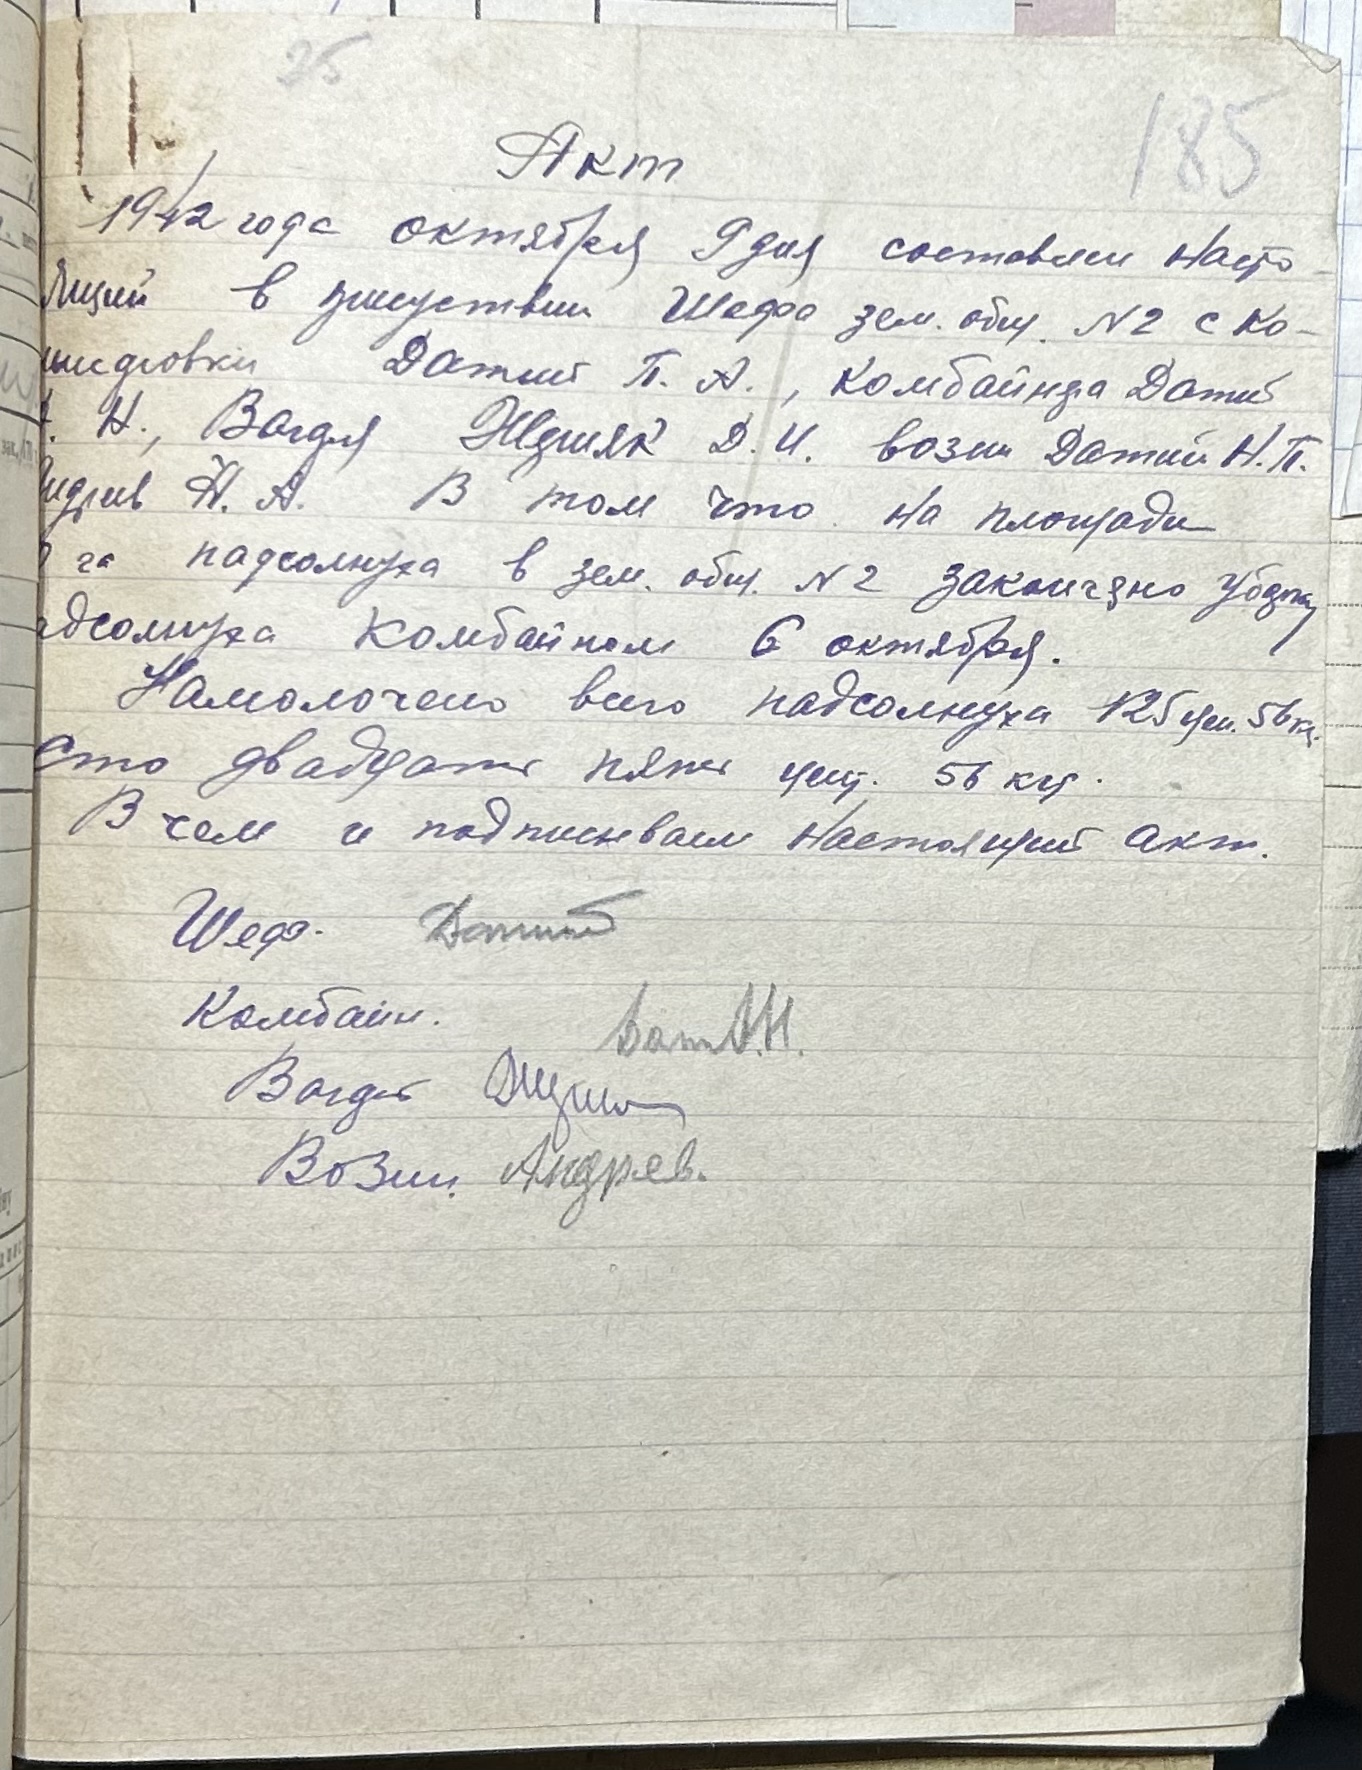 25
185
Акт
1942 года октября 9 дня составлен насто-
ящий в присутствии Шефа зем. общ. N2 с Ко-
Датий П. А., комбайнера Датий
Н., Вагдля Жушняк Д. И. возии Датий Н. П.
Н. А. В том что на площади
га падсолнуха в зем. общ. N2 закончено уборку
адсолнуха комбайном 6 октября.
Намолочено всего падсолнуха 125 цен. 56 кг.
Сто двадцать пять цент. 56 кг.
В чем и подписываем настоящий акт.
Шеф. Датий
Комбайн. Дат А.Н.
Вагдт
Возии. Андрев.